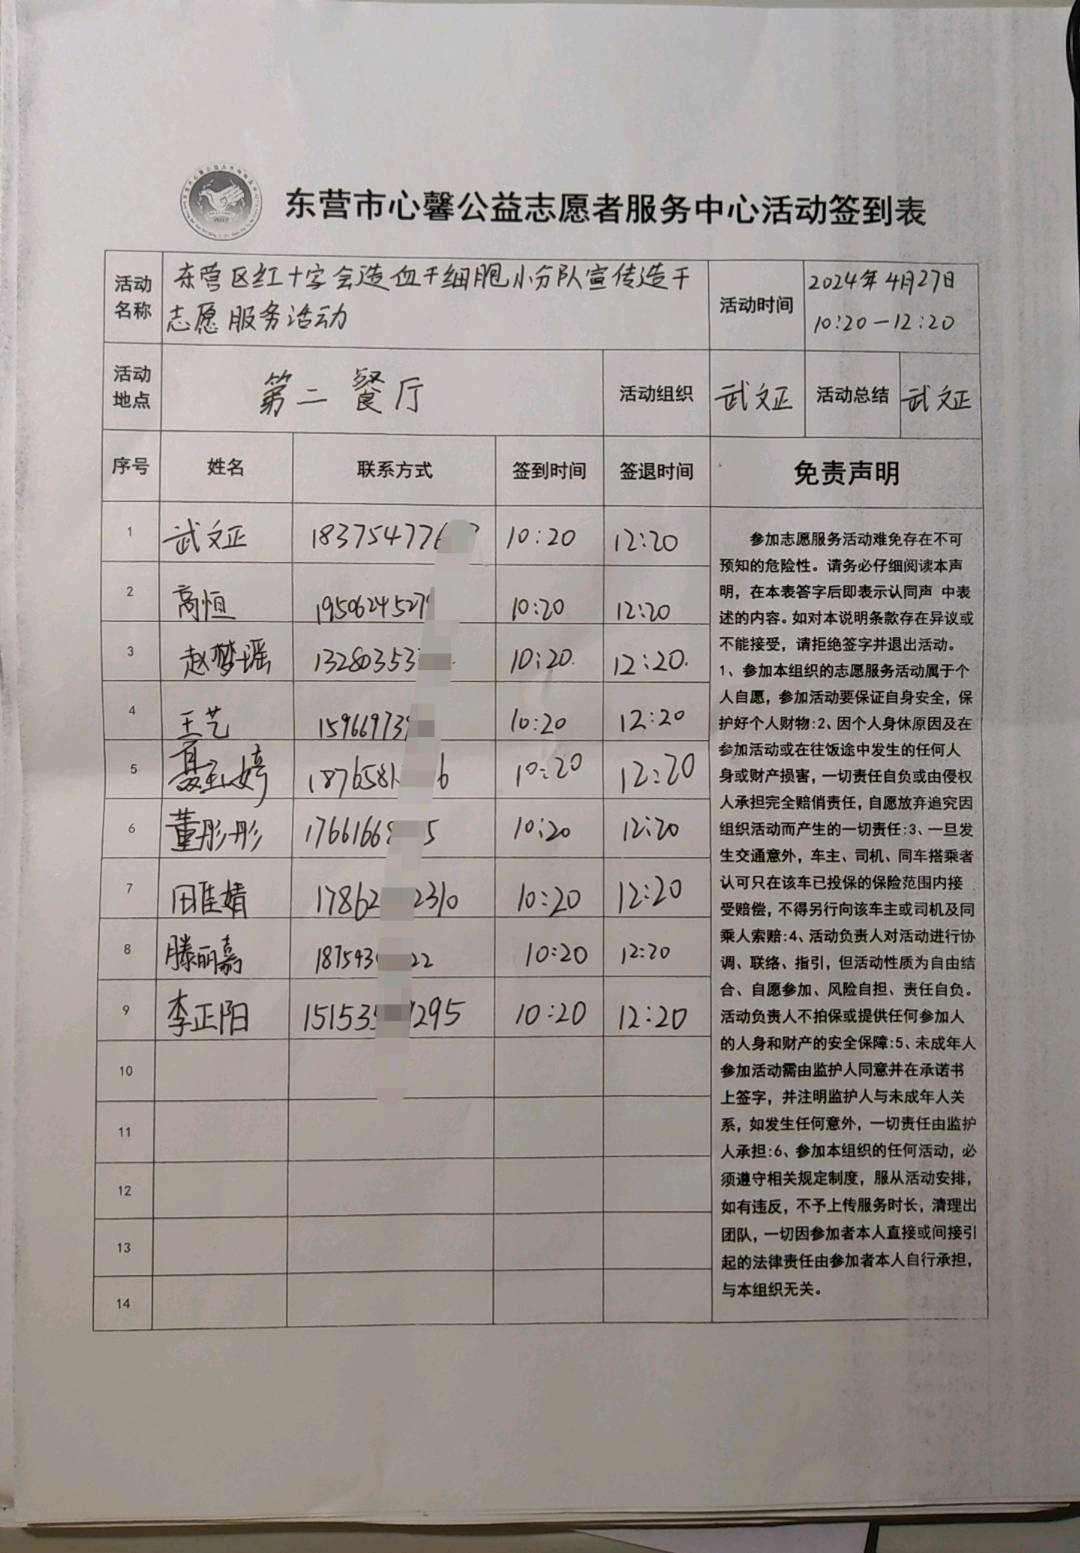 东营市心馨公益志愿者服务中心活动签到表
活动名称 东营区红十字会造血干细胞小分队宣传造干志愿服务活动 活动时间 2024年4月27日 10:20-12:20
活动地点 第二餐厅 活动组织 武文正 活动总结 武文正
序号 姓名 联系方式 签到时间 签退时间 免责声明
1 武文正 183754776 10:20 12:20
2 高恒 1950624527 10:20 12:20
3 赵梦瑶 13280353 10:20. 12:20.
4 王艺 15966973 10:20 12:20
5 聂玉婷 1876581 6 10:20 12:20
6 董彤彤 1766166 5 10:20 12:20
7 田佳婧 17862 2310 10:20 12:20
8 滕丽嘉 187593 22 10:20 12:20
9 李正阳 15153 1295 10:20 12:20
10
11
12
13
14
参加志愿服务活动难免存在不可
预知的危险性。请务必仔细阅读本声
明，在本表答字后即表示认同声 中表
述的内容。如对本说明条款存在异议或
不能接受，请拒绝签字并退出活动。
1、参加本组织的志愿服务活动属于个
人自愿，参加活动要保证自身安全，保
护好个人财物:2、因个人身休原因及在
参加活动或在往饭途中发生的任何人
身或财产损害，一切责任自负或由侵权
人承担完全赔俏责任，自愿放弃追究因
组织活动而产生的一切责任:3、一旦发
生交通意外，车主、司机、同车搭乘者
认可只在该车已投保的保险范围内接
受赔偿，不得另行向该车主或司机及同
乘人索赔:4、活动负责人对活动进行协
调、联络、指引，但活动性质为自由结
合、自愿参加、风险自担、责任自负。
活动负责人不拍保或提供任何参加人
的人身和财产的安全保障:5、未成年人
参加活动需由监护人同意并在承诺书
上签字，并注明监护人与未成年人关
系，如发生任何意外，一切责任由监护
人承担:6、参加本组织的任何活动，必
须遵守相关规定制度，服从活动安排，
如有违反，不予上传服务时长，清理出
团队，一切因参加者本人直接或间接引
起的法律责任由参加者本人自行承担，
与本组织无关。